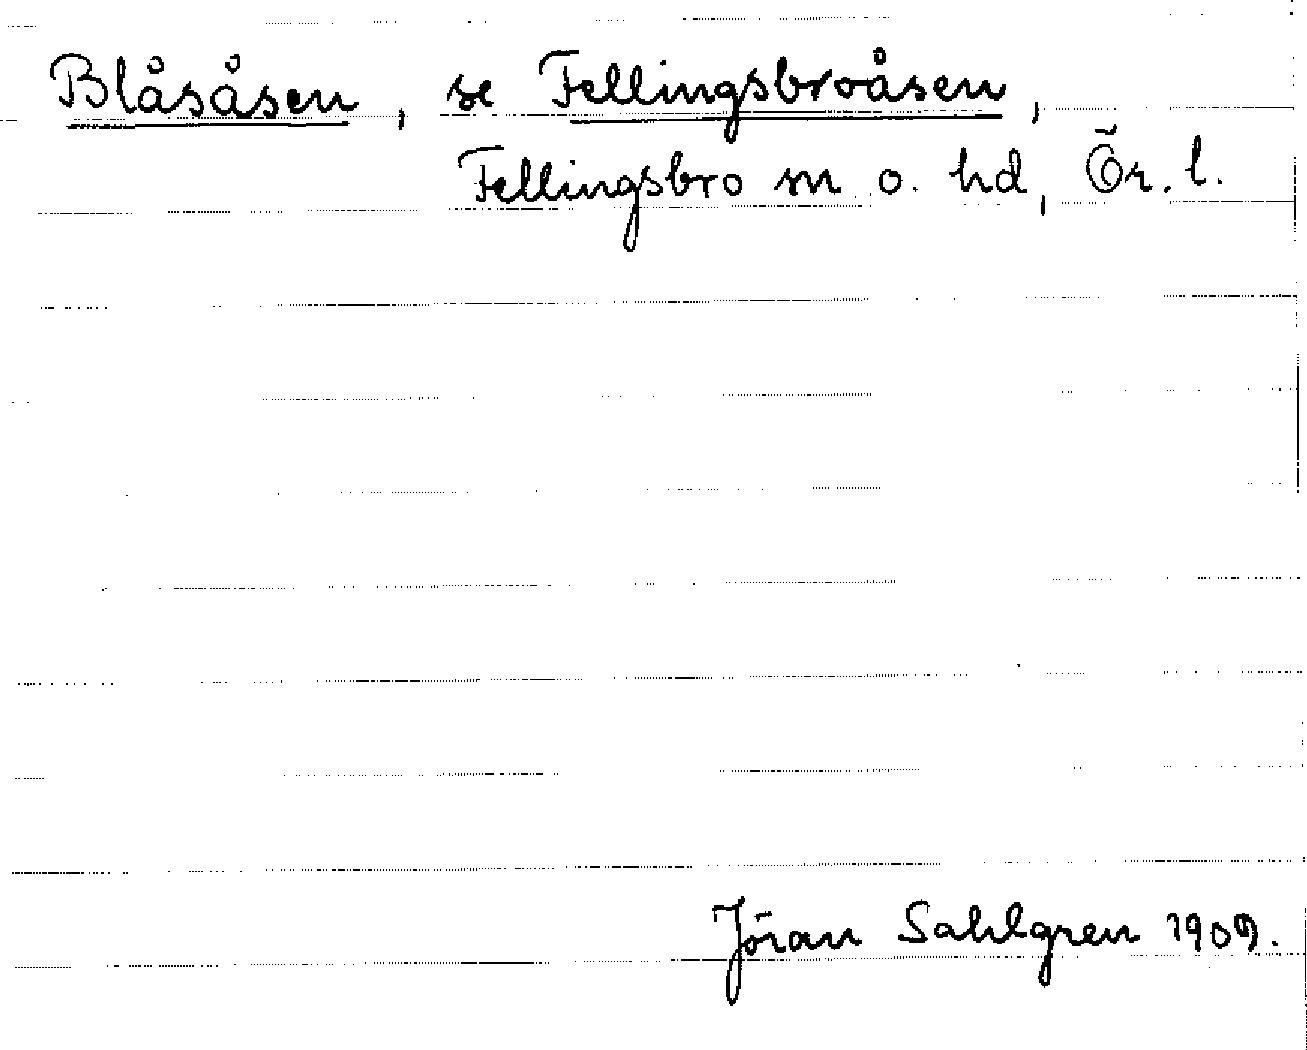 Blåsåsen, se Fellingsbroåsen,
Fellingsbro sn o. hd, Ör. l.
Jöran Sahlgren 1909.